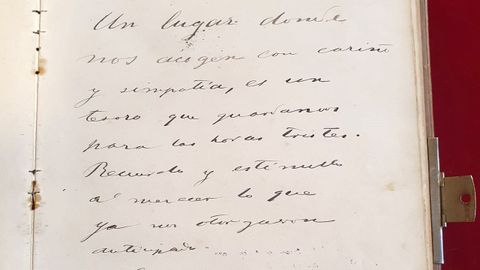 Un lugar donde
nos acogen con cariño
y simpatía, es un
tesoro que guardamos
para las horas tristes.
Recuerdo y estímulo
al merecer lo que
ya nos otorgaron
anticipa